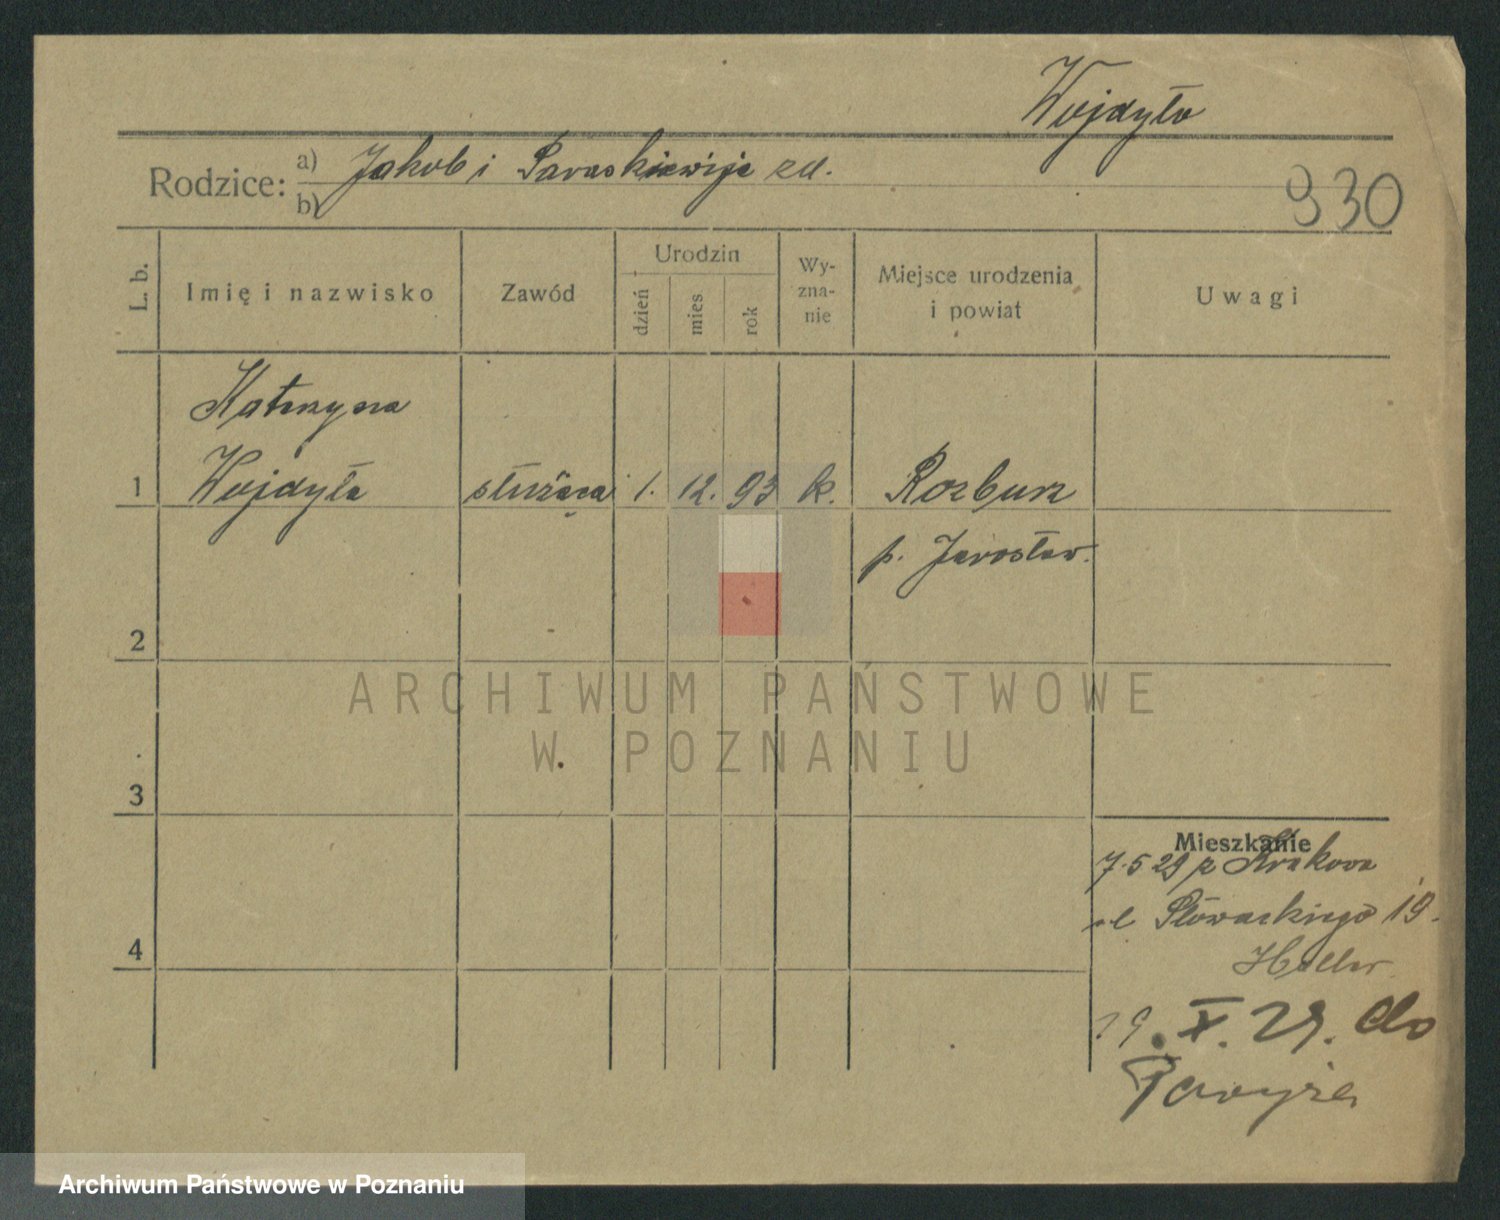 Wojdyło
Rodzice: a) Jakob i Paraskiewija zd.
b)
930
L. b.
Imię i nazwisko
Zawód
Urodzin
dzień
mies
rok
Wy-
zna-
nie
Miejsce urodzenia
i powiat
Uwagi
Katarzyna
1 Wojdyła służąca 1. 12. 93 k. Rozburz
p. Jarosław.
2
3
4
ARCHIWUM PAŃSTWOWE
W POZNANIU
Mieszkanie
7.5 29 z Krakowa
ul Słowackiego 19.
Heller
19. X. 29. do
Paryża
Archiwum Państwowe w Poznaniu